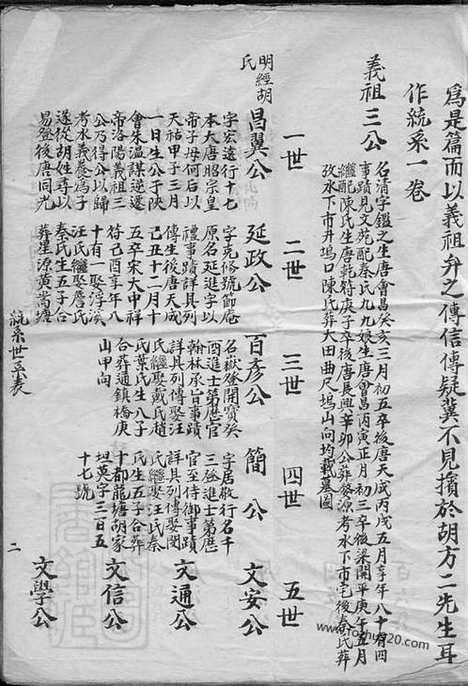 為是篇而以義祖弁之傳信傳疑冀不見擯於胡方二先生耳
作統系一卷
義祖三公
名清字鑑之生唐會昌癸亥三月初五卒後唐天成丙戌五月享年八十有四
事蹟見文苑配秦氏九九娘生唐會昌丙寅正月初三卒後梁開平庚午五月
繼配陳氏生唐乾符庚子卒後唐長興辛卯公葬婺源考水下市宅後秦氏葬
考水下市井塢口陳氏葬大田曲尺塢山向均載墓圖
一世
二世
三世
四世
五世
明經胡氏
昌翼公
字宏遠行十七
本大唐昭宗皇
帝子母何后以
天祐甲子三月
一日生公于陝
會朱溫謀逆遷
帝洛陽義祖三
公乃得公以歸
考水義養為子
遂從胡姓尋以
易登後唐同光
延政公
字克脩號節庵
原名延進字以
禮事蹟詳具列
傳生後唐天成
己丑十二月十
五卒宋大中祥
符己酉享年八
十有一娶浮溪
汪氏繼娶詹氏
秦氏生五子合
葬星源黃蒿塘
百彥公
名嶽登開寶癸
酉進士第歷官
翰林承旨事蹟
詳具列傳娶汪
氏繼娶戴氏趙
氏葉氏生八子
合葬通鎮橋庚
山甲向
簡公
字居敬行名千
三登進士第歷
官至侍御事蹟
詳具列傳娶閔
氏繼娶汪氏秦
氏生五子合葬
十都龍塘胡家
坦英字三百五
十七號
文安公
文通公
文信公
文學公
統系世系表
二